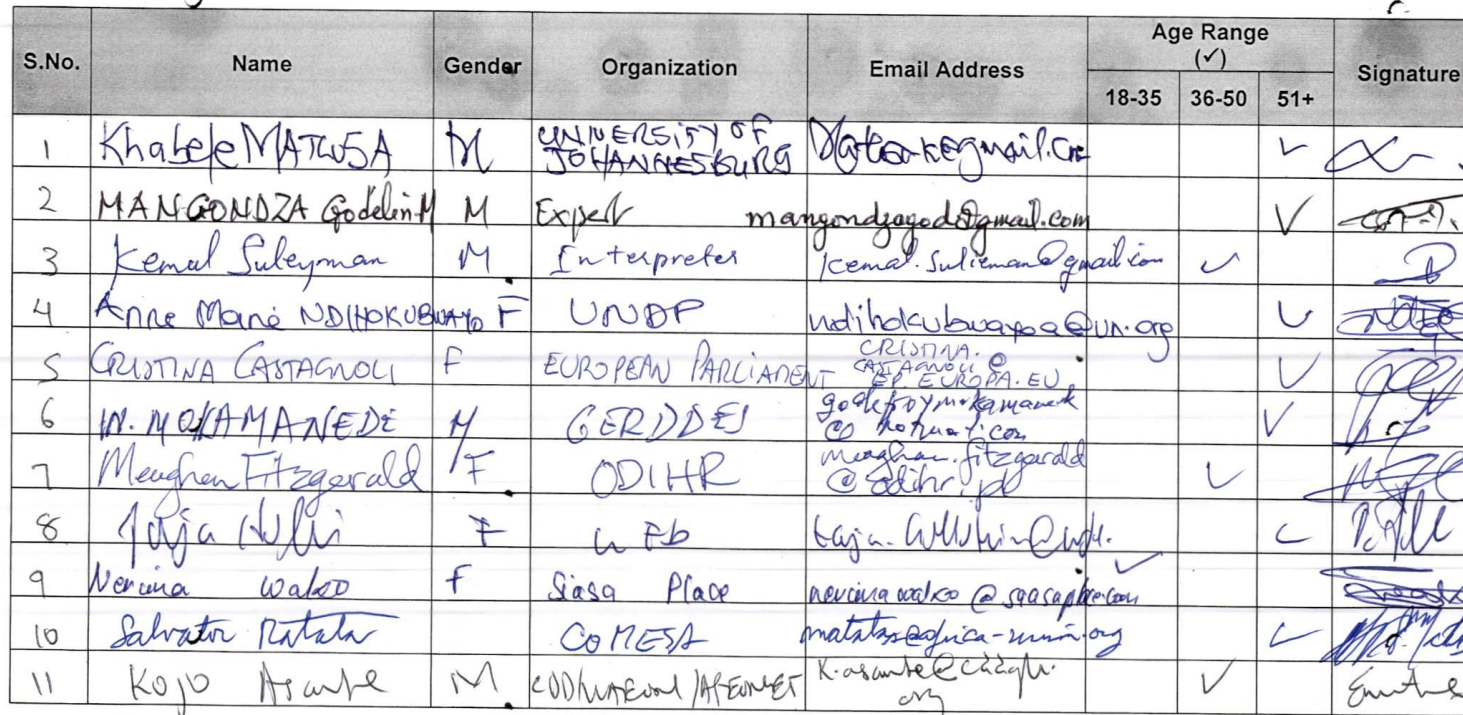 S.No. Name Gender Organization Email Address Age Range (✓) Signature
18-35 36-50 51+
1 Khabele MATLOSA M UNIVERSITY OF JOHANNESBURG ✓
2 MANGONDZA Godelin M M Expert mangondzagod@gmail.com ✓
3 Kemal Suleyman M Interpreter kemal.sulieman@gmail.com ✓
4 Anne Marie NDIHOKUBWAYO F UNDP ndihokubwayoa@un.org ✓
5 CRISTINA CASTAGNOLI F EUROPEAN PARLIAMENT CRISTINA.
CASTAGNOLI @
EP.EUROPA.EU ✓
6 IN. MOKAMANEDE M GERDDES godefroymokamanede
@ hotmail.com ✓
7 Meaghan Fitzgerald F ODIHR meaghan.fitzgerald
@odihr.pl ✓
8 F ✓
9 Nerima Wako F Siasa Place nerimawako@siasaplace.com ✓
10 Salvator Matata COMESA ✓
11 Kojo Asante M ✓